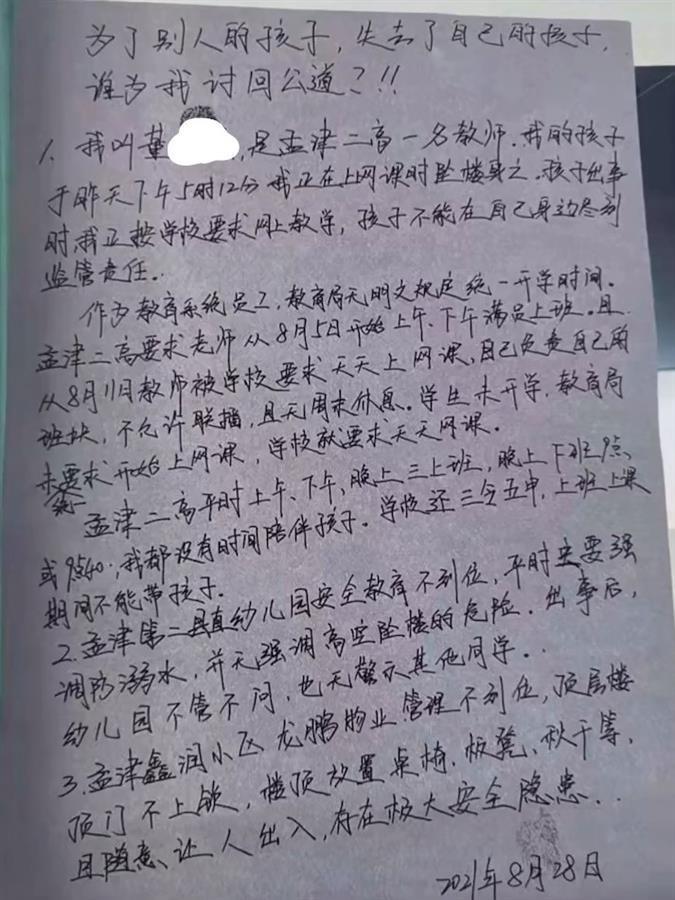 为了别人的孩子，失去了自己的孩子，
谁为我讨回公道？!!
1、我叫董 ，是孟津二高一名教师。我的孩子
于昨天下午5时12分我正在上网课时坠楼身亡。孩子出事
时，我正按学校要求网上教学，孩子不能在自己身边尽到
监管责任..
作为教育系统员工，教育局无明文规定统一开学时间。
孟津二高要求老师从8月5日开始上午、下午满员上班。且
从8月11日教师被学校要求天天上网课，自己负责自己的
班块，不允许联播，且无周末休息。学生未开学，教育局
未统一要求开始上网课，学校就要求天天网课。
孟津二高平时上午、下午，晚上三上班，晚上下班9点
或9点40，我都没有时间陪伴孩子。学校还三令五申，上班上课
期间不能带孩子.
2.孟津第二县直幼儿园安全教育不到位，平时主要强
调防溺水，并无强调高空坠楼的危险．出事后，
幼儿园不管不问，也无警示其他同学..
3.孟津鑫润小区龙鹏物业管理不到位，顶层楼
顶门不上锁，楼顶放置桌椅、板凳、秋千等，
且随意让人出入，存在极大安全隐患...
2021年8月28日